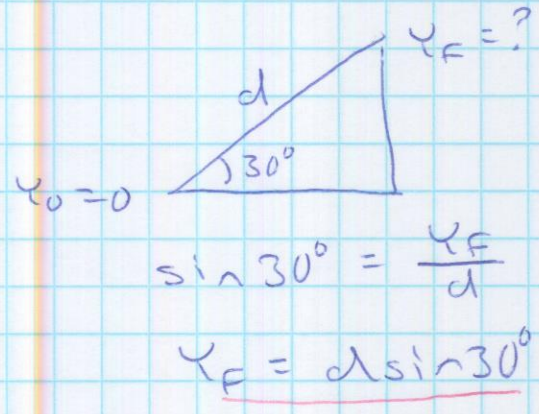 Y_F = ?
d
30°
Y_0 = 0
sin 30° = Y_F / d
Y_F = d sin 30°